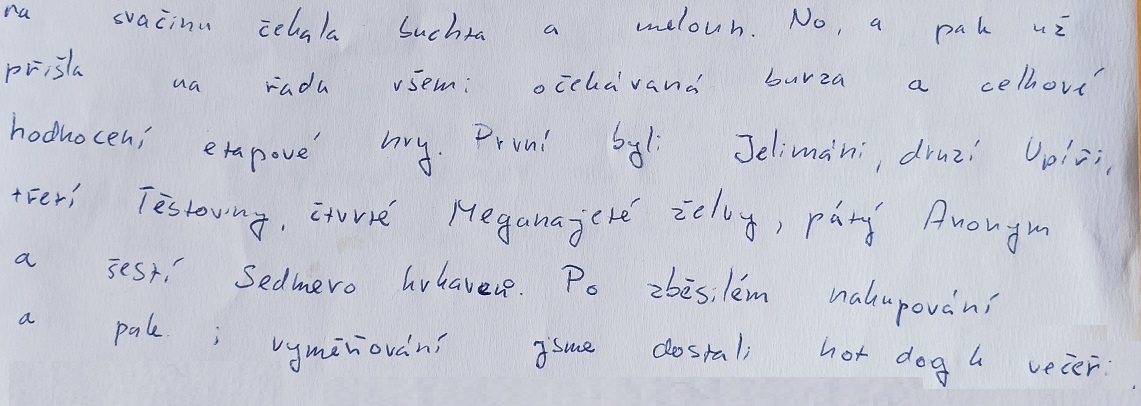 na svačinu čekala buchta a meloun. No, a pak už
přišla na řadu všemi očekávaná burza a celkové
hodnocení etapové hry. První byli Jelimáni, druzí Upíři,
třetí Těstoviny, čtvrté Meganajeté želvy, pátý Anonym
a šestí Sedmero krkavců. Po zběsilém nakupování
a pak i vyměňování jsme dostali hot dog k večeři.